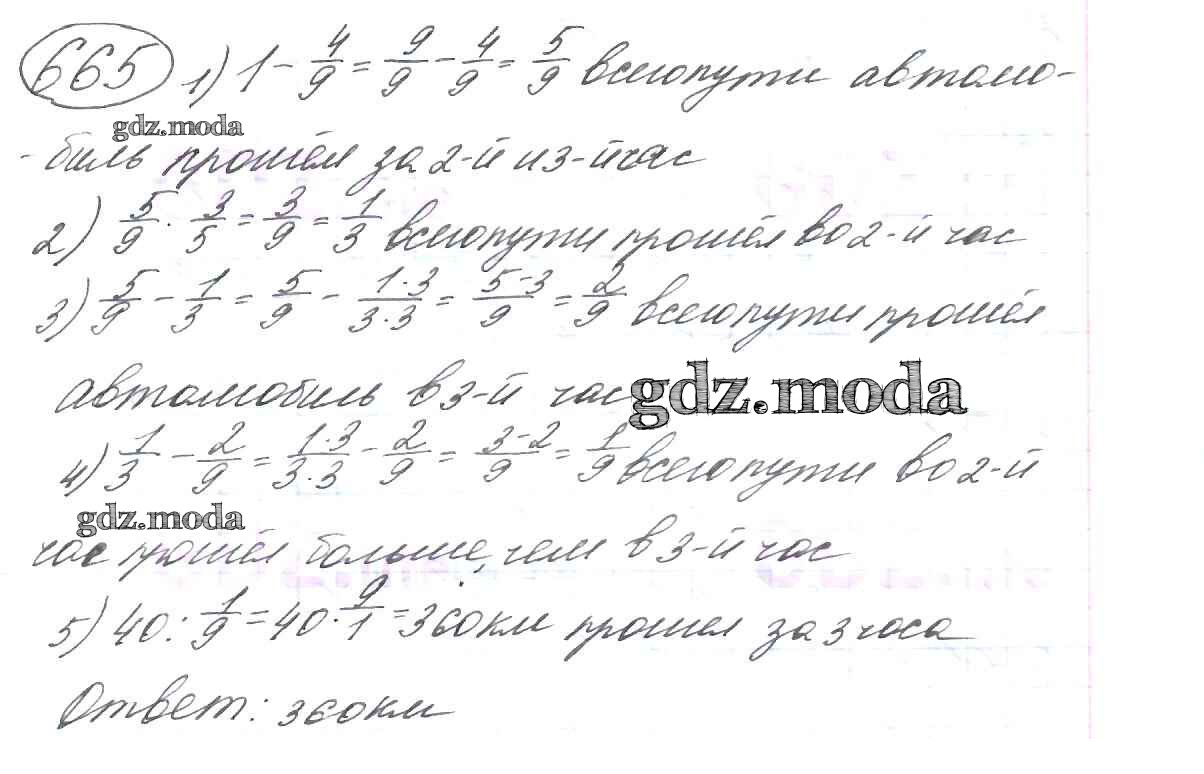 665 1) 1 - 4/9 = 9/9 - 4/9 = 5/9 всего пути автомо-
gdz.moda
-биль прошёл за 2-й и 3-й час
2) 5/9 · 3/5 = 3/9 = 1/3 всего пути прошёл во 2-й час
3) 5/9 - 1/3 = 5/9 - 1·3/3·3 = 5-3/9 = 2/9 всего пути прошёл
автомобиль в 3-й час
gdz.moda
4) 1/3 - 2/9 = 1·3/3·3 - 2/9 = 3-2/9 = 1/9 всего пути во 2-й
gdz.moda
час прошёл больше, чем в 3-й час
5) 40 : 1/9 = 40 · 9/1 = 360 км прошел за 3 часа
Ответ: 360 км